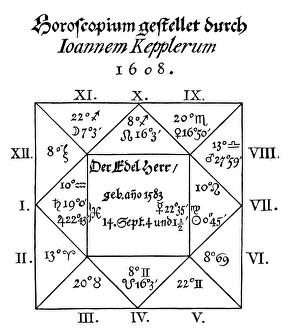 Horoscopium gestellet durch
Ioannem Kepplerum
1608.
XI. X. IX.
22°♐ 8°♐ 20°♏
☽7°3′ ☊16°3′ ♀16°50′
XII. 8°♑ 13°♎ VIII.
♂27°59′
Der Edel Herr/
10°♒ 10°♌
geb. año 1583
I. ♄19°0′ ☿22°35′ ♍ VII.
♃22°13′ ♓ 14. Sept. 4 und 1½′ ☉0°45′
II. 13°♈ 8°♋ VI.
20°♉ 8°♊ 22°♊
☋16°3′
III. IV. V.